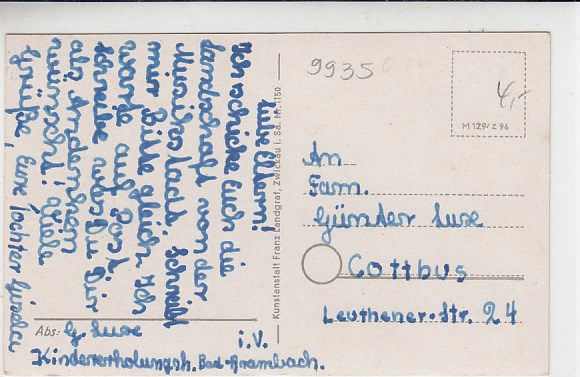 Liebe Eltern!
Ich schicke Euch die
Landschaft von der
schreibt
mir Bitte gleich. Ich
warte auf Post.
schreibe was Du Dir
als Andenken
wünscht! Viele
Grüße, Eure Tochter
Abs.: G. Luxe
i.V.
Kindererholungsh. Bad-Brambach.
Kunstanstalt Franz Landgraf, Zwickau i. Sa. Nr. 1150
9935
4,-
M 129/ Z 96
An
Fam.
Günder Luxe
Cottbus
Leuthener-Str. 24